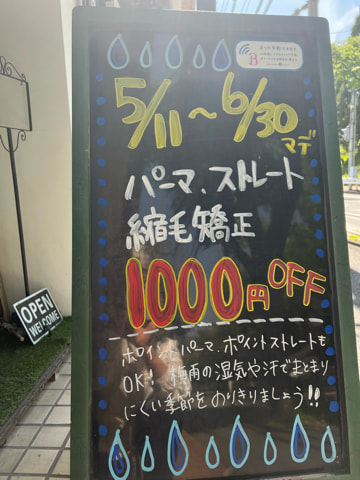 5/11～6/30
マデ
パーマ、ストレート
縮毛矯正
1000円OFF
ポイントパーマ、ポイントストレートも
OK! 梅雨の湿気や汗でまとまり
にくい季節をのりきりましょう!!
OPEN
WELCOME